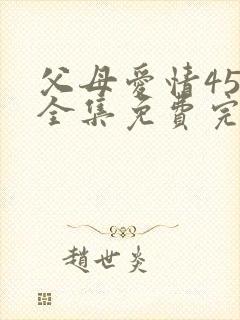 父母愛情45
全集免費完
趙世炎